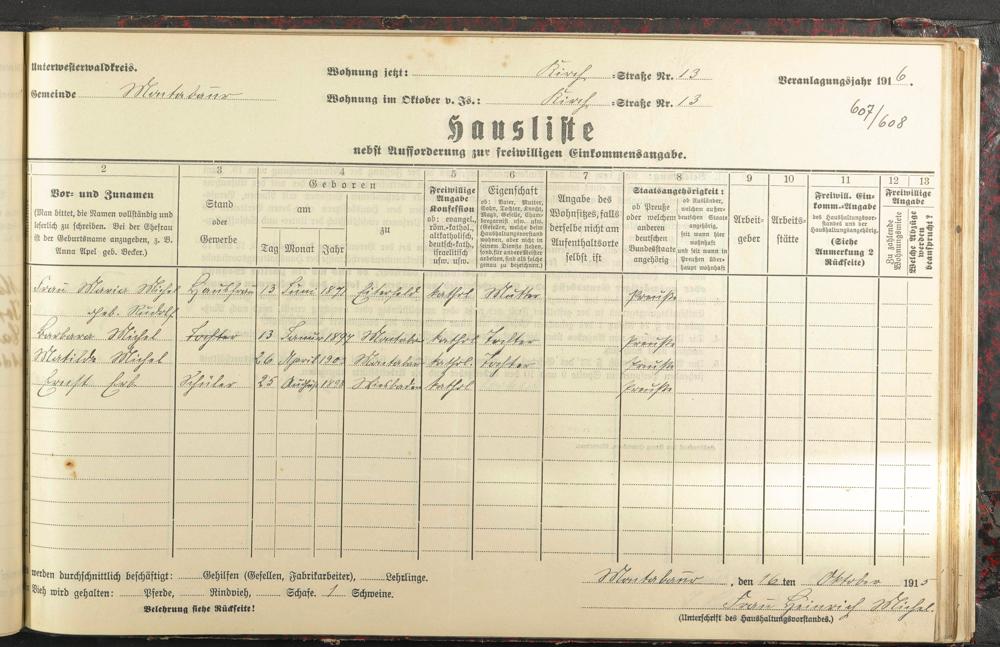 Unterwesterwaldkreis.
Gemeinde Montabaur
Wohnung jetzt: Kirch =Straße Nr. 13
Wohnung im Oktober v. Js.: Kirch =Straße Nr. 13
Veranlagungsjahr 1916.
607/608
Hausliste
nebst Aufforderung zur freiwilligen Einkommensangabe.
2 3 4 5 6 7 8 9 10 11 12 13
Vor- und Zunamen
(Man bittet, die Namen vollständig und
leserlich zu schreiben. Bei der Ehefrau
ist der Geburtsname anzugeben, z. B.
Anna Apel geb. Becker.)
Stand
oder
Gewerbe
Geboren
am
Tag Monat Jahr
zu
Freiwillige
Angabe
Konfession
ob: evangel.,
röm.-kathol.,
altkatholisch,
deutsch-kath.,
israelitisch
usw. usw.
Eigenschaft
ob: Vater, Mutter,
Sohn, Tochter, Knecht,
Magd, Geselle, Cham-
bregarnist usw. usw.
(Gesellen, welche beim
Haushaltungsvorstand
wohnen, aber nicht in
dessen Dienste stehen,
sond. für andere Meister
arbeiten, sind als solche
genau zu bezeichnen.)
Angabe des
Wohnsitzes, falls
derselbe nicht am
Aufenthaltsorte
selbst ist
Staatsangehörigkeit:
ob Preuße
oder welchem
anderen
deutschen
Bundesstaate
angehörig
ob Ausländer,
welchem außer-
deutschen Staate
angehörig,
seit wann hier
wohnhaft
und seit wann in
Preußen über-
haupt wohnhaft
Arbeit-
geber
Arbeits-
stätte
Freiwill. Ein-
komm.-Angabe
des Haushaltungsvor-
standes und der
Haushaltungsangehörig.
(Siehe
Anmerkung 2
Rückseite)
Freiwillige
Angabe
Zu zahlende
Wohnungsmiete
Welche Abzüge
werden
beansprucht?
Frau Maria Michel Hausfrau 13 Juni 1871 kathol Mutter Preuße
geb. Rudolf
Barbara Michel Tochter 13 Januar 1897 Montabaur kathol Tochter Preuße
Matilda Michel 26 April Montabaur kathol. Tochter Preuße
Ernst Erb Schüler 25 August 1898 Wiesbaden kathol Preuße
werden durchschnittlich beschäftigt: Gehilfen (Gesellen, Fabrikarbeiter), Lehrlinge.
Vieh wird gehalten: Pferde, Rindvieh, Schafe. 1 Schweine.
Belehrung siehe Rückseite!
Montabaur, den 16 ten Oktober 1915
Frau Heinrich Michel.
(Unterschrift des Haushaltungsvorstandes.)